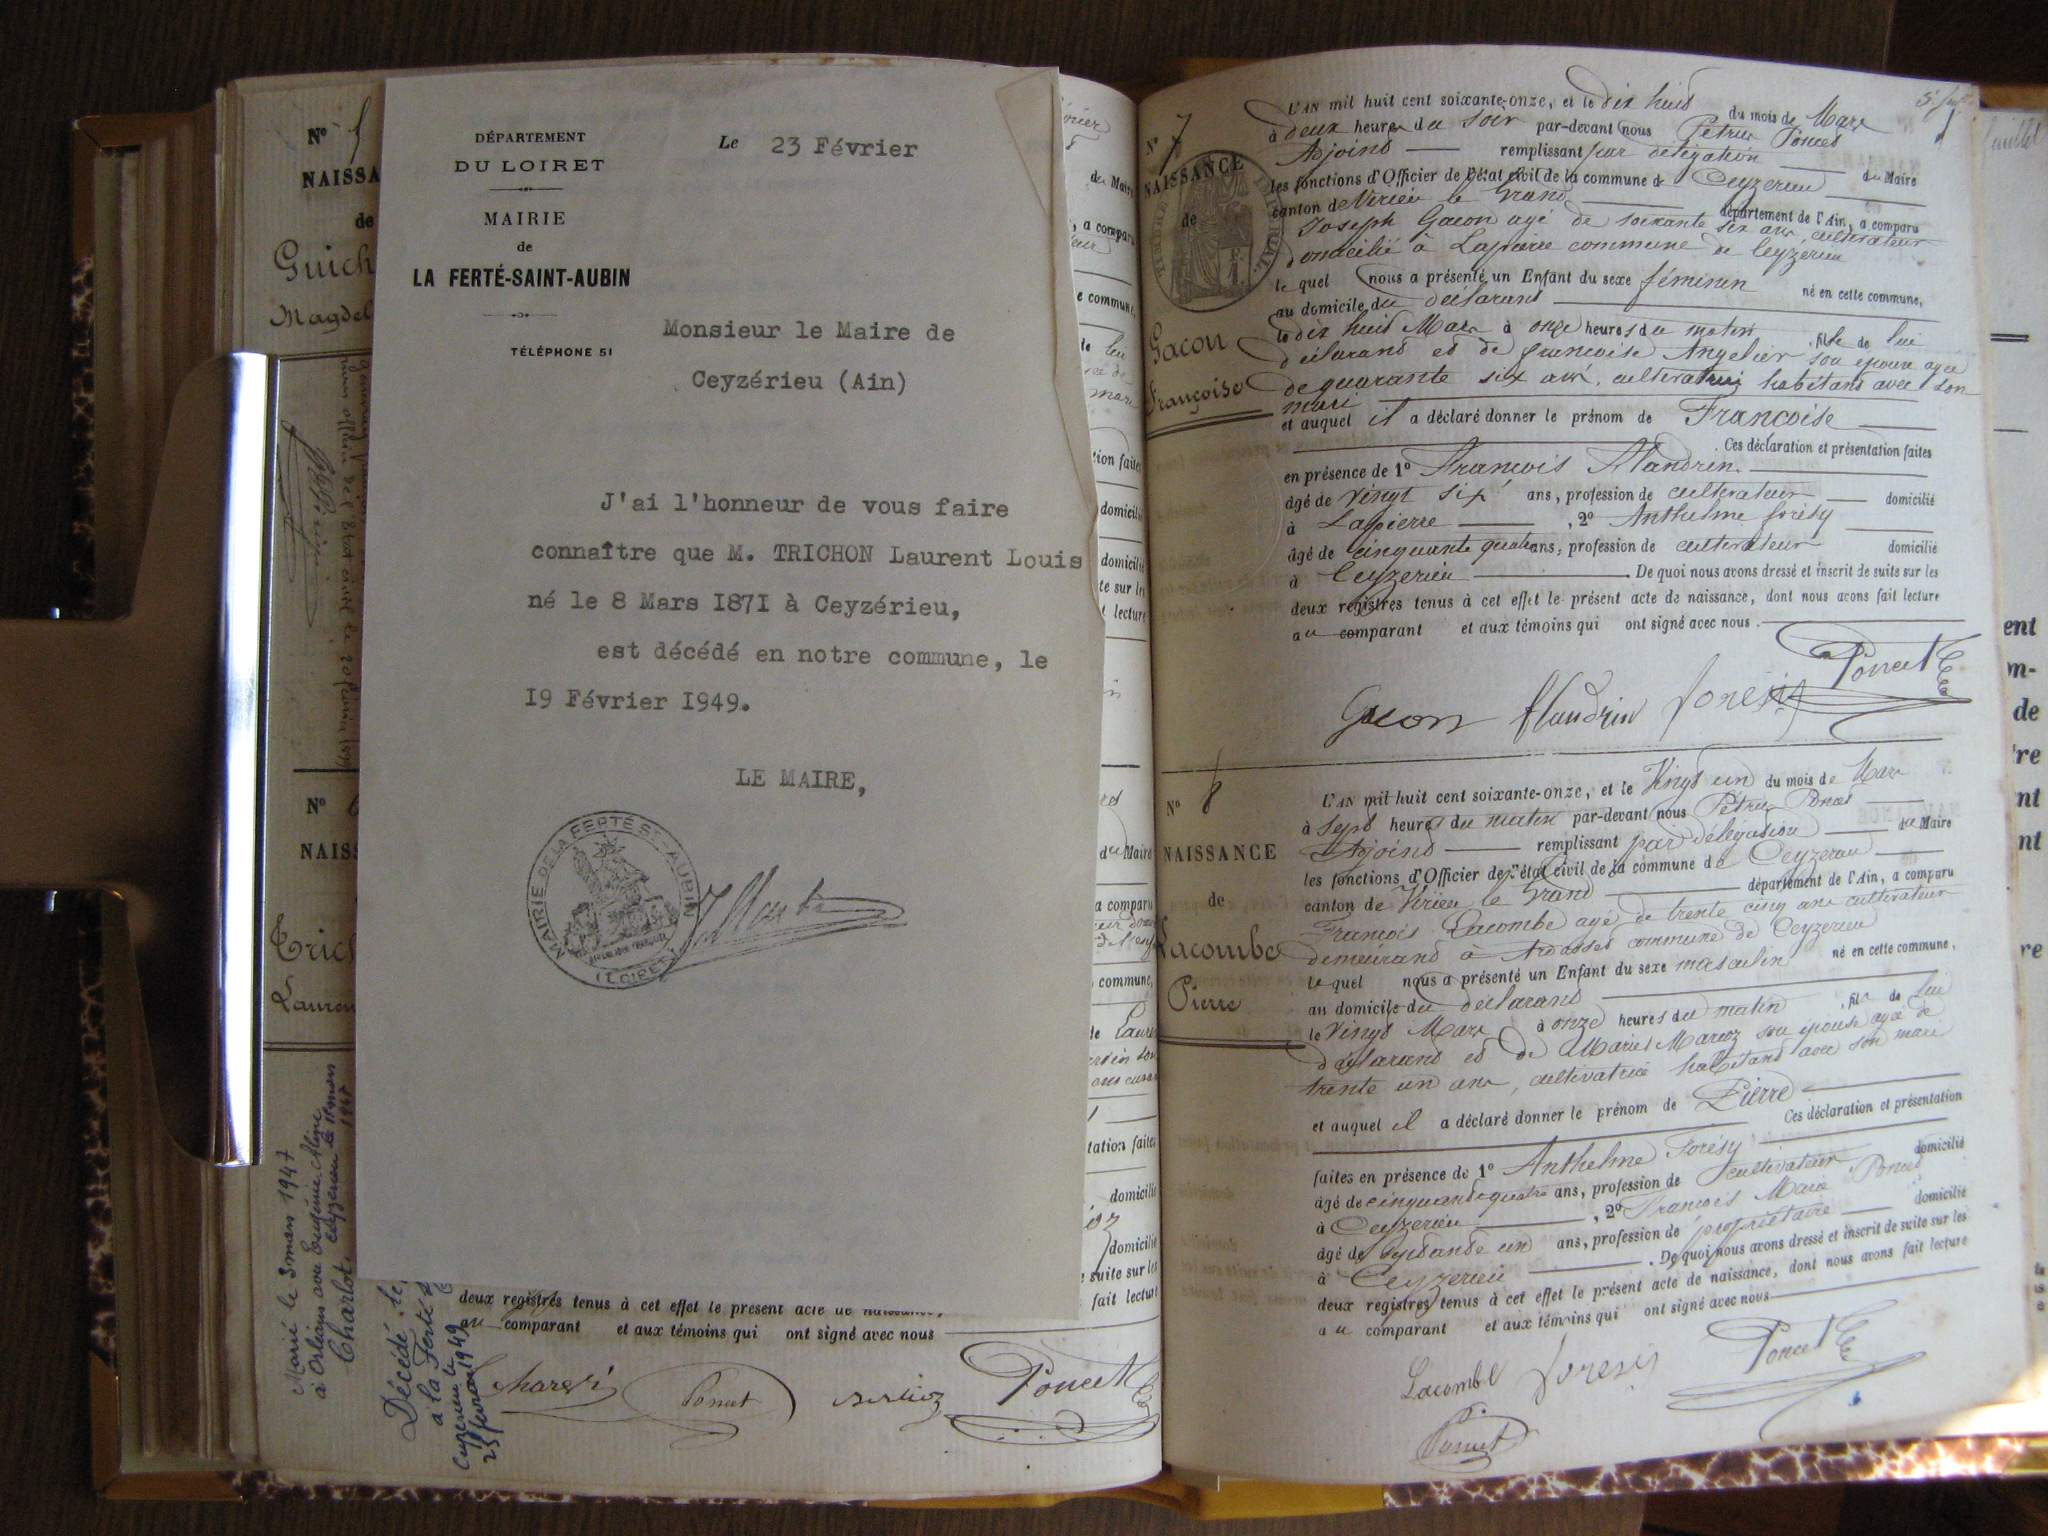 N° 5
NAISSA
de
Guich
Magdel
N° 6
NAISS
Trich
Lauren
Marié le 3 mars 1947
à Orléans avec Eugénie Aline
Charlot
Ceyzerieu le 11 mars
1947
Décédé le
à la Ferté S
Ceyzerieu le
25 fevrier 1949
DÉPARTEMENT
DU LOIRET
MAIRIE
de
LA FERTÉ-SAINT-AUBIN
TÉLÉPHONE 51
Le 23 Février
Monsieur le Maire de
Ceyzérieu (Ain)
J'ai l'honneur de vous faire
connaître que M. TRICHON Laurent Louis
né le 8 Mars I87I à Ceyzérieu,
est décédé en notre commune, le
I9 Février I949.
LE MAIRE,
MAIRIE DE LA FERTÉ ST-AUBIN
(LOIRET)
du Maire
, a comparu
e commune,
tion faites
domicilié
domicilié
te sur les
t lecture
du Maire
a comparu
commune,
de Laure
tation faites
domicilié
domicilié
e suite sur les
fait lecture
deux registres tenus à cet effet le present acte de naissance,
au comparant et aux témoins qui ont signé avec nous
Poncet
Berlioz
Poncet
N° 7
NAISSANCE
de
Gacon
Françoise
L'AN mil huit cent soixante-onze, et le dix huit du mois de Mars
à deux heures du soir par-devant nous Pétrus Poncet
Adjoint remplissant par délégation du Maire
les fonctions d'Officier de l'état civil de la commune de Ceyzerieu
canton de Virieu le Grand département de l'Ain, a comparu
Joseph Gacon agé de soixante six ans, cultivateur
domicilié à Lapierre commune de Ceyzerieu
le quel nous a présenté un Enfant du sexe féminin né en cette commune,
au domicile du déclarant
le dix huit Mars à onze heures du matin fille de lui
déclarant et de françoise Angelier son épouse agée
de quarante six ans, cultivatrice habitant avec son
mari
et auquel il a déclaré donner le prénom de Françoise
Ces déclaration et présentation faites
en présence de 1° François Flandrin
âgé de vingt six ans, profession de cultivateur domicilié
à Lapierre , 2° Anthelme forésy
âgé de cinquante quatre ans, profession de cultivateur domicilié
à Ceyzerieu . De quoi nous avons dressé et inscrit de suite sur les
deux registres tenus à cet effet le présent acte de naissance, dont nous avons fait lecture
au comparant et aux témoins qui ont signé avec nous.
Poncet
Gacon flandrin foresy
N° 8
NAISSANCE
de
Lacombe
Pierre
L'AN mil huit cent soixante-onze, et le Vingt un du mois de Mars
à sept heures du matin par-devant nous Pétrus Poncet
Adjoint remplissant par délégation du Maire
les fonctions d'Officier de l'état civil de la commune de Ceyzerieu
canton de Virieu le Grand département de l'Ain, a comparu
François Lacombe agé de trente cinq ans cultivateur
demeurant à Ardosset commune de Ceyzerieu
le quel nous a présenté un Enfant du sexe masculin né en cette commune,
au domicile du déclarant
le vingt Mars à onze heures du matin , fils de lui
déclarant et de Marie Marcoz son épouse agée de
trente un ans, cultivatrice habitant avec son mari
et auquel il a déclaré donner le prénom de Pierre
Ces déclaration et présentation
faites en présence de 1° Anthelme Forésy
âgé de cinquante quatre ans, profession de cultivateur domicilié
à Ceyzerieu , 2° François Marie Poncet
âgé de ans, profession de propriétaire domicilié
à Ceyzerieu . De quoi nous avons dressé et inscrit de suite sur les
deux registres tenus à cet effet le présent acte de naissance, dont nous avons fait lecture
au comparant et aux témoins qui ont signé avec nous
Lacombe foresy Poncet
Poncet
juillet
ent
de
nt
re